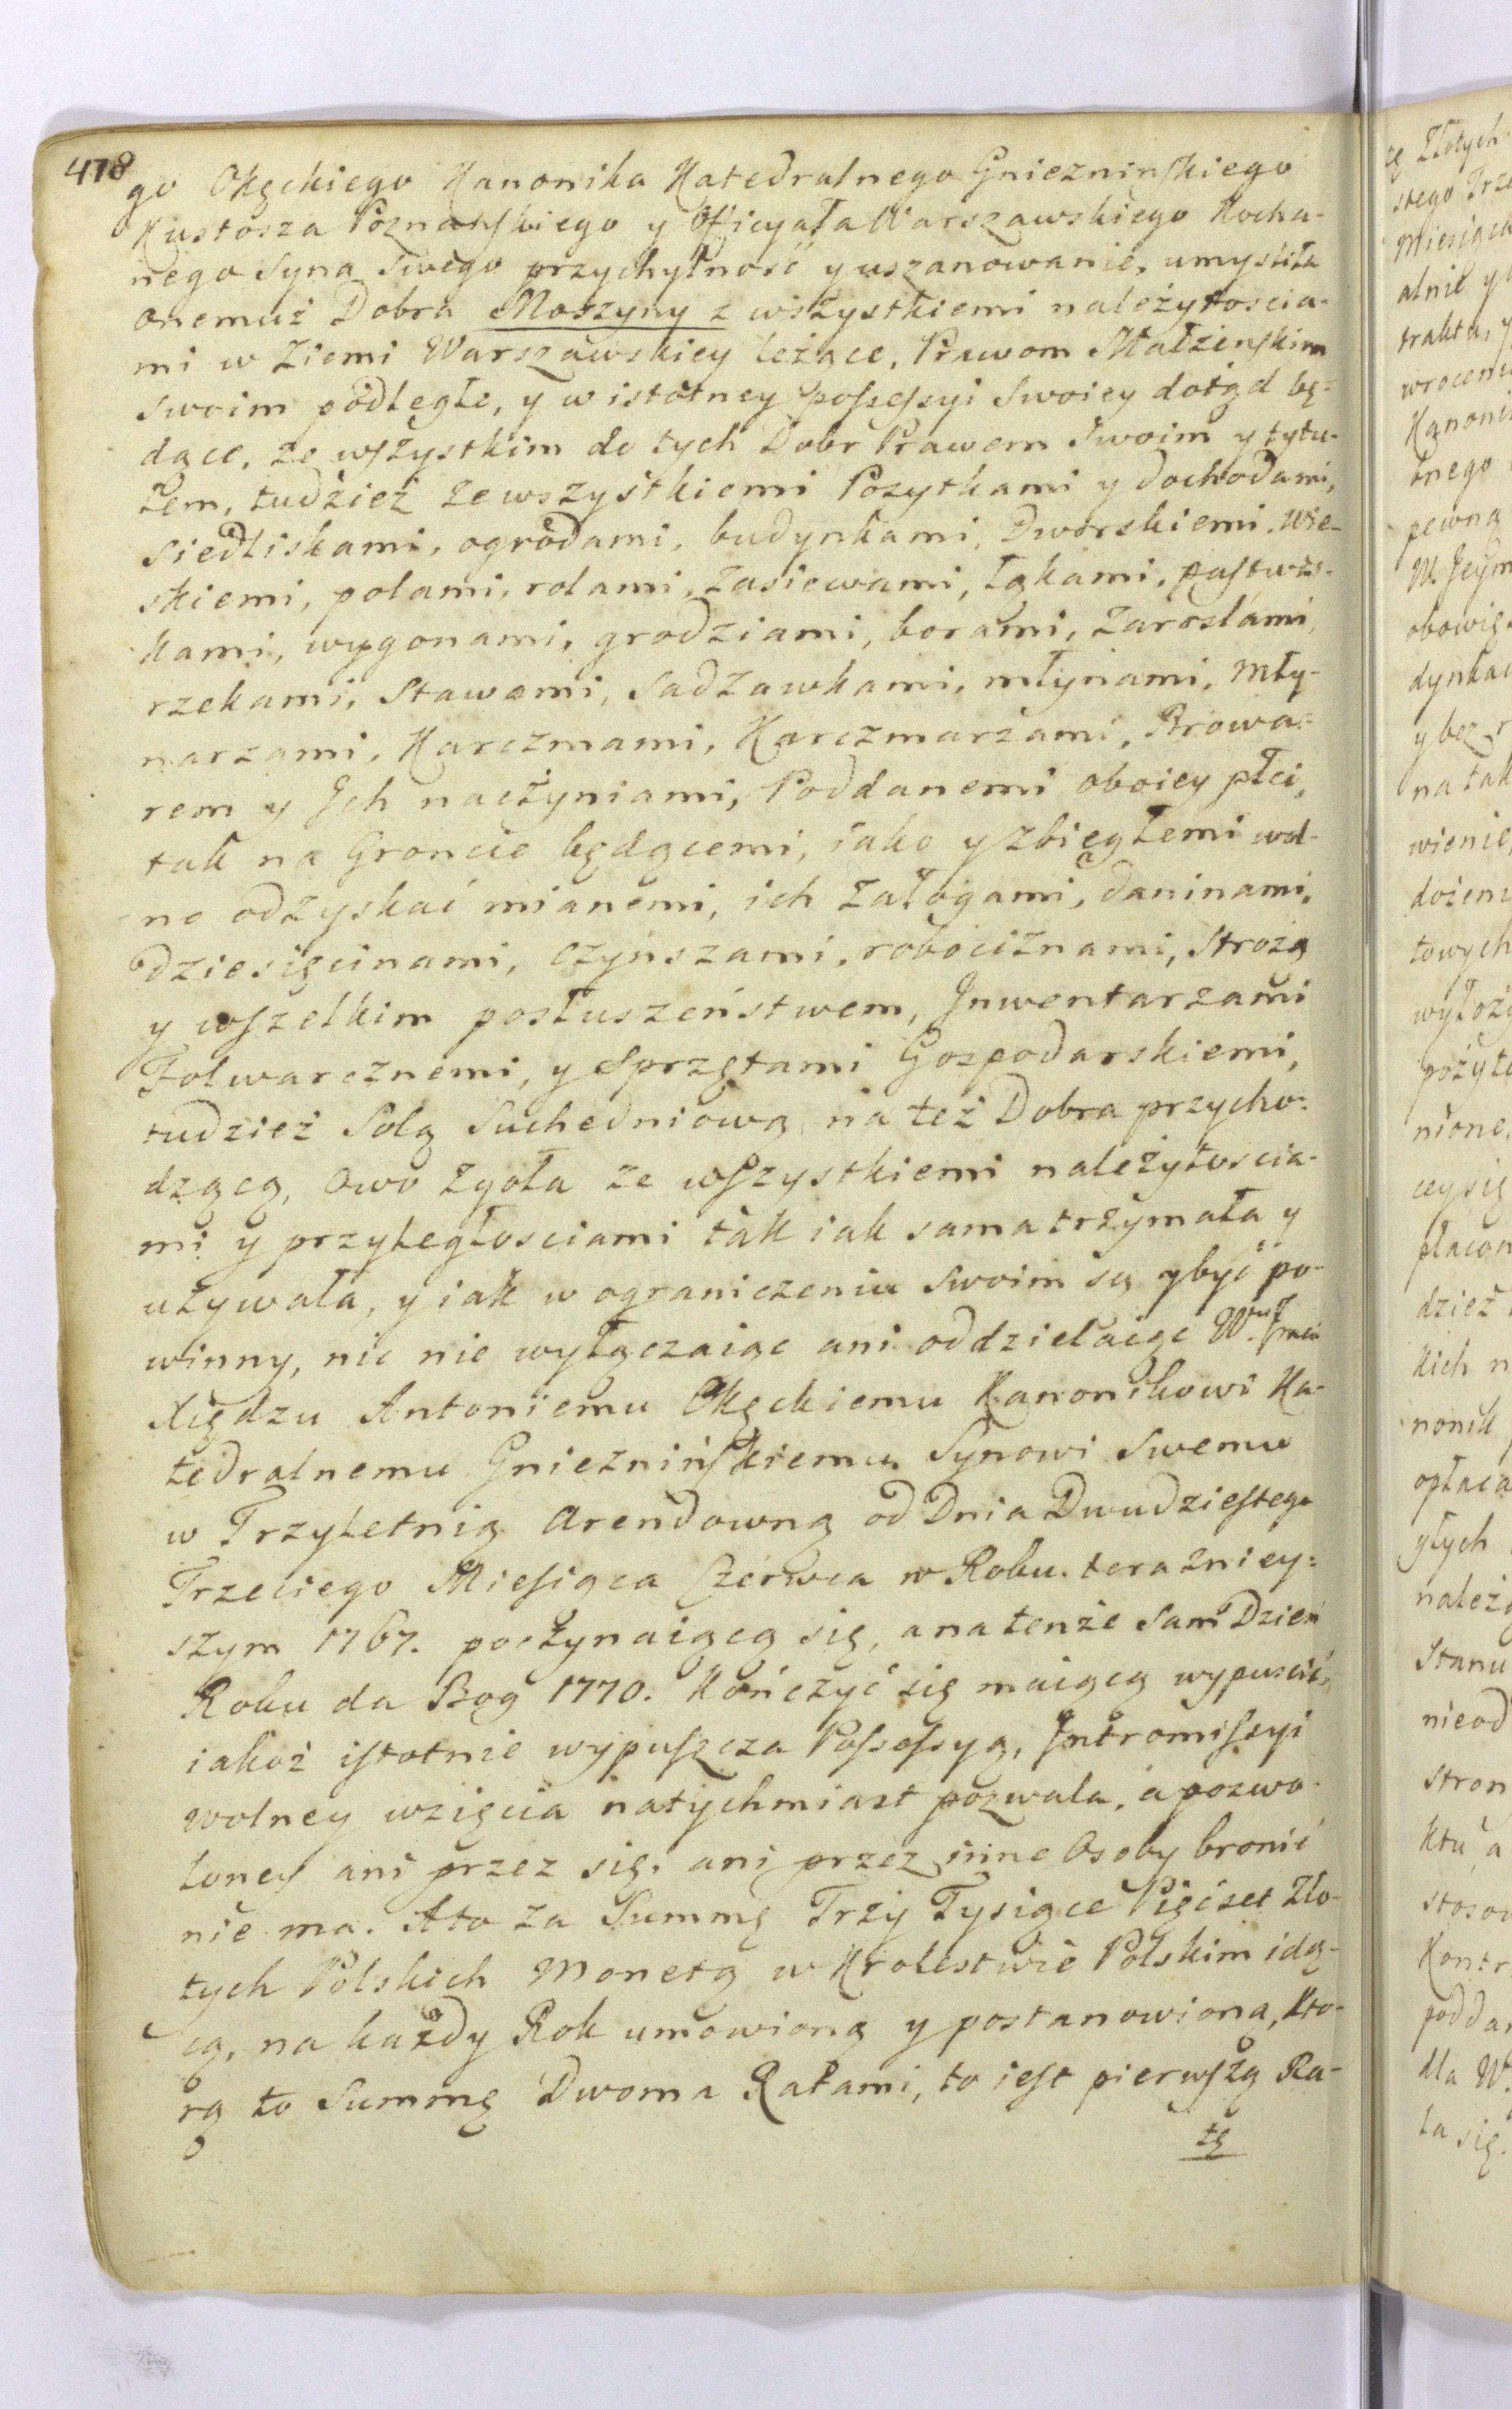 478
go Okęckiego Kanonika Katedralnego Gniezninskiego
Kustosza Poznanskiego y Officyała Warszawskiego Kocha-
nego Syna Swego przychylność y uszanowanie, umysliła
onemuż Dobra Moszyny z wszystkiemi należytoscia-
mi w Ziemi Warszawskiey leżące, Prawom Małżenskim
swoim podległe, y w istotney possessyi Swoiey dotąd bę-
dące, ze wszystkim do tych Dobr Prawem Swoim y tytu-
łem, tudzież ze wszystkiemi Pozytkami y dochodami,
siedliskami, ogrodami, budynkami, Dworskiemi, Wie-
skiemi, polami, rolami, zasiewami, łąkami, pastwis-
kami, wygonami, grodziami, borami, zaroslami,
rzekami, Stawami, Sadzawkami, młynami, Mły-
narzami, Karczmami, Karczmarzami, Browa-
rem y Ich naczyniami, Poddanemi oboiey płci,
tak na Groncie będącemi, iako y zbiegłemi wol-
no odzyskać mianemi, ich załogami, daninami,
dziesięcinami, czynszami, robociznami, Strożą
y wszelkim posłuszeństwem, Inwentarzami
Folwarcznemi, y Sprzętami Gospodarskiemi,
tudzież Solą Suchedniową na też Dobra przycho-
dzącą, owo zgoła ze wszystkiemi należytoscia-
mi y przyległosciami tak iak sama trzymała y
używała, y iak w ograniczeniu swoim są y być po-
winny, nic nie wyłączaiąc ani oddzielaiąc
Xiędzu Antoniemu Okęckiemu Kanonikowi Ka-
tedralnemu Gniezninskiemu Synowi Swemu
w Trzyletnią Arendowną od Dnia Dwudziestego
Trzeciego Miesiąca Czerwca w Roku terazniey-
szym 1767. poczynaiącą się, a na tenże sam Dzień
Roku da Bog 1770. Kończyć się maiącą wypuscić,
iakoż istotnie wypuszcza Possessyą, Intromissyi
wolney wzięcia natychmiast pozwala, a pozwo-
loney ani przez się, ani przez inne Osoby bronić
nie ma. A to za Summę Trzy Tysiące Pięćset Zło-
tych Polskich Monetą w Krolestwie Polskim idą-
cą, na każdy Rok umowioną y postanowioną, Kto-
rą to Summę Dwoma Ratami, to iest pierwszą Ra-
tę